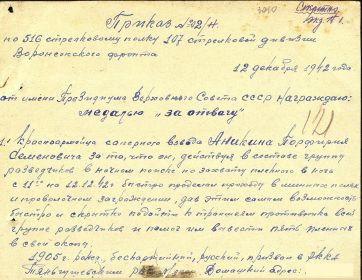 Приказ № 02/н
по 516 стрелковому полку 107 стрелковой дивизии
Воронежского фронта
12 декабря 1942 года
от имени Президиума Верховного Совета СССР награждаю:
медалью „за отвагу"
1. Красноармейца саперного взвода Аникина Порфирия
Семеновича за то, что он, действуя в составе группы
разведчиков в ночном поиске по захвату пленного в ночь
с 11 на 12.12.42 г. быстро проделал проходы в минных полях
и проволочном заграждении, дав этим самым возможность
быстро и скрытно подойти к траншеям противника всей
группе разведчиков и помог им вывести пять пленных
в свои окопы.
1905 г. рожд., беспартийный, русский, призван в РККА
Теньгушевским Домашний адрес: